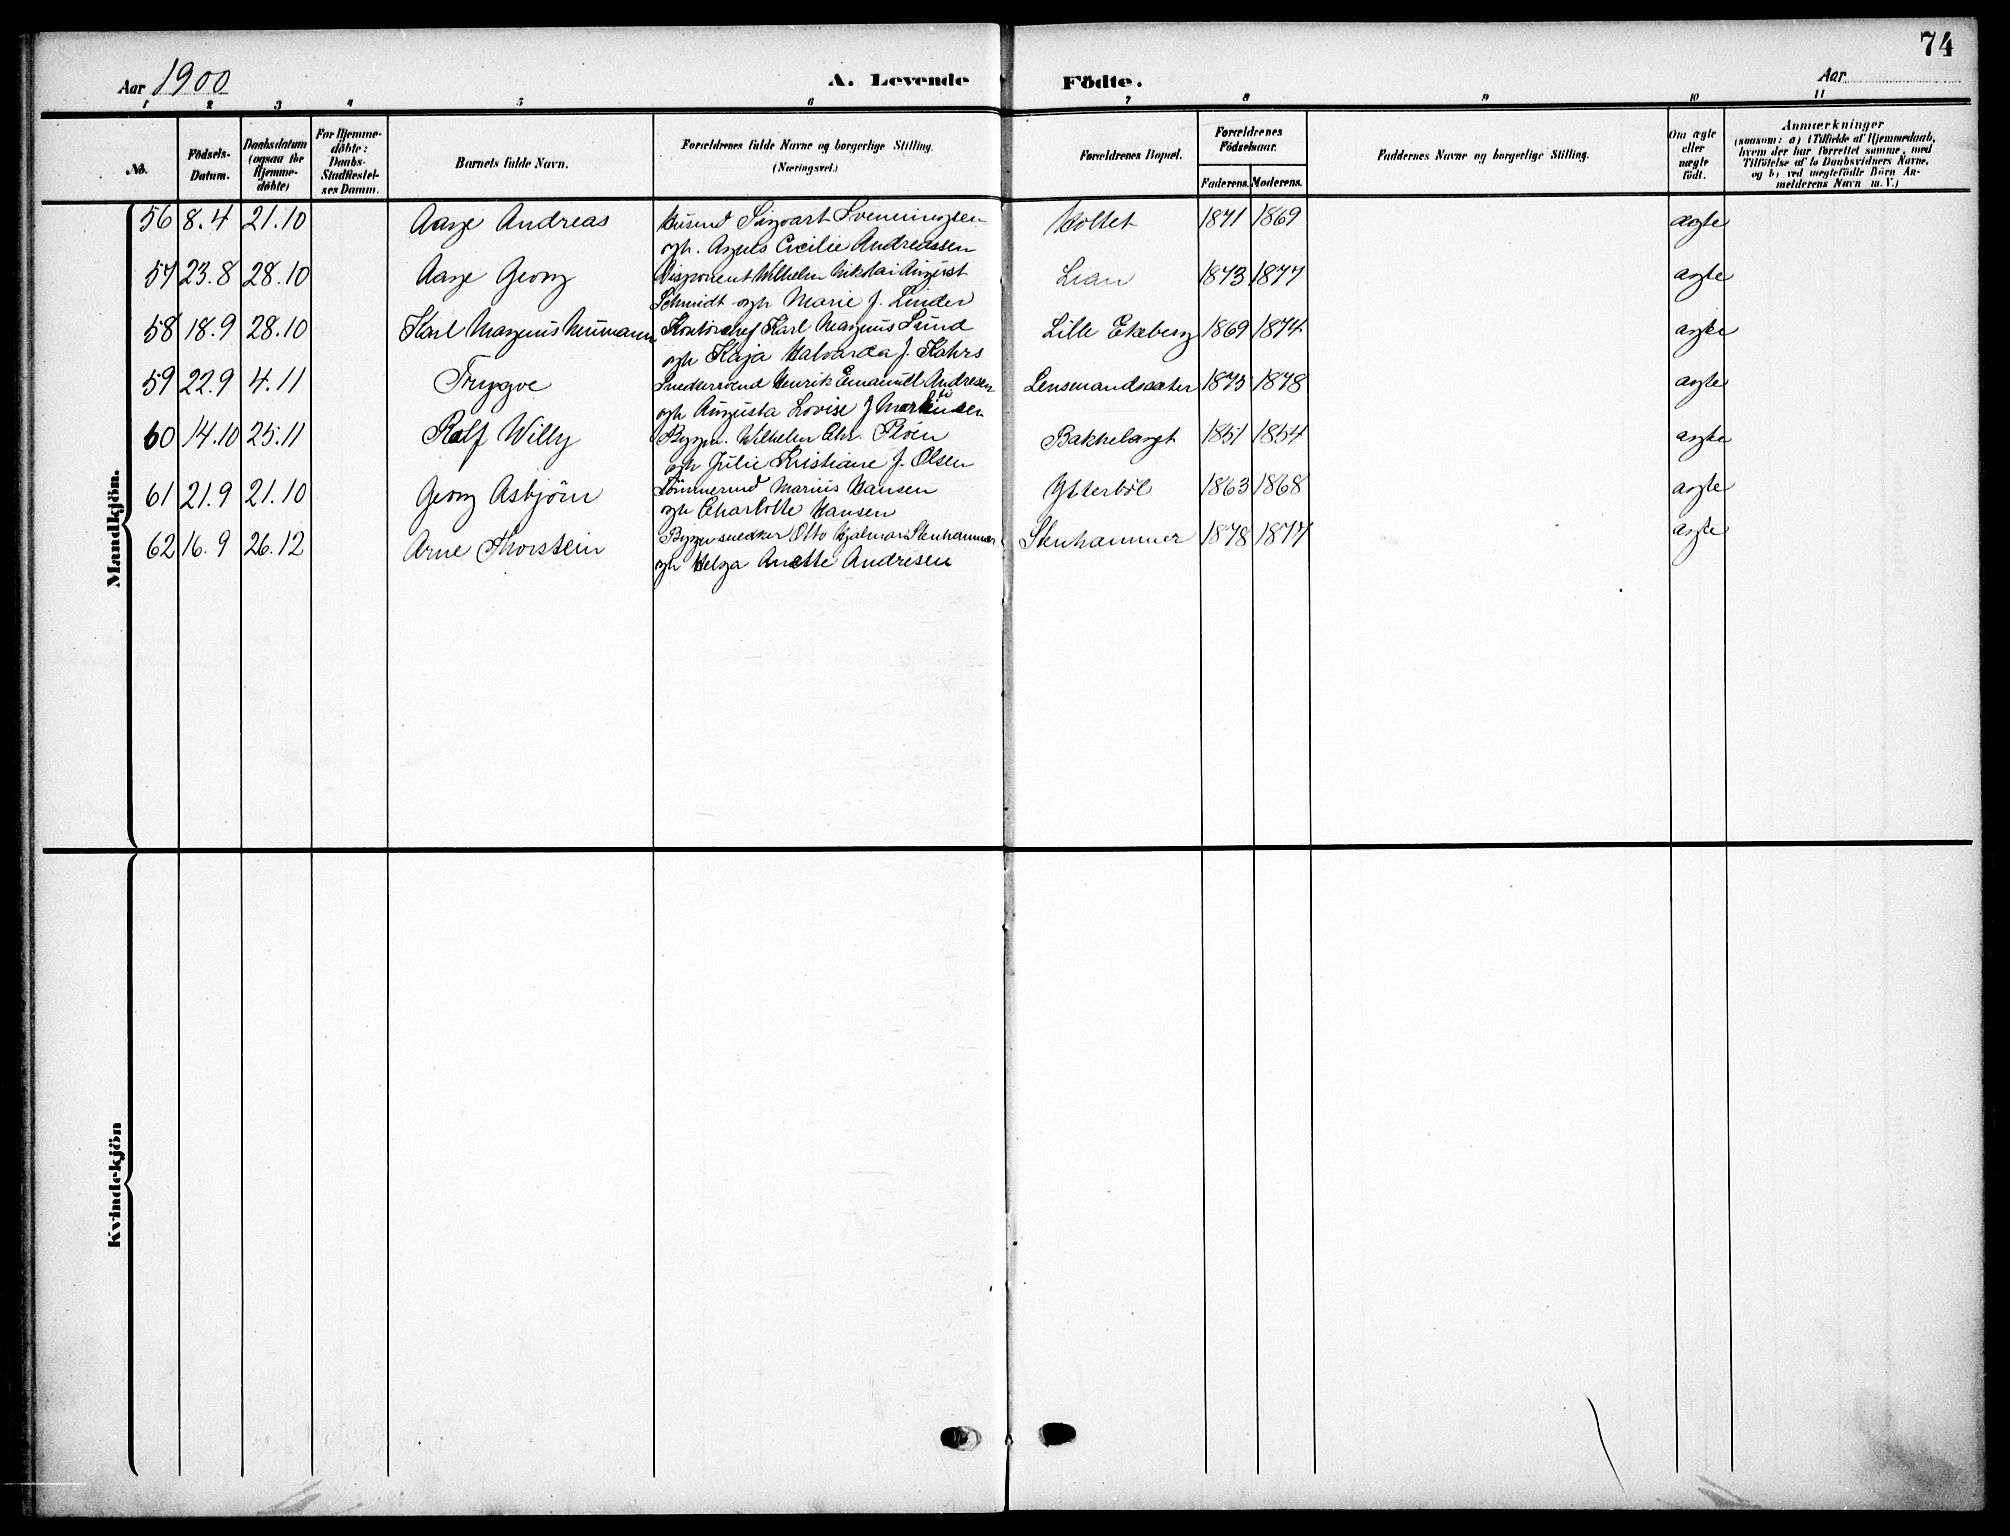 74
Aar 1900
A. Levende Födte.
Aar
1 2 3 4 5 6 7 8 9 10 11
No.
Födsels-Datum.
Daabsdatum (ogsaa for Hjemme-döbte)
For Hjemme-döbte: Daabs-Stadfæstel-ses Datum.
Barnets fulde Navn.
Forældrenes fulde Navne og borgerlige Stilling. (Næringsvei.)
Forældrenes Bopæl.
Forældrenes Födselsaar.
Faderens. Moderens.
Faddernes Navne og borgerlige Stilling.
Om ægte eller uægte födt.
Anmærkninger
(saasom: a) i Tilfælde af Hjemmedaab, hvem der har forrettet samme, med Tilföielse af to Daabsvidners Navne, og b) ved uægtefödte Börn An-melderens Navn m. V.)
Mandkjön.
56 8.4 21.10 Aage Andreas Husmd Sigvart Svenningsen Holtet 1871 1869 ægte
og h. Agnes Cecilie Andreassen
57 23.8 28.10 Aage Georg Disponent Wilhelm Nikolai August Lian 1873 1877 ægte
Schmidt og h Marie f. Linder
58 18.9 28.10 Karl Magnus Kontorchef Karl Magnus Lund Lille Ekeberg 1869 1874 ægte
og h Kaja Halvarda f. Kahrs
59 22.9 4.11 Trygve Snedkersvend Henrik Emanuel Andresen Lensmandssæter 1875 1878 ægte
og h Augusta Lovise f Martinsen
60 14.10 25.11 Rolf Willy Bygm. Wilhelm Chr. Bakkehaugt 1851 1854 ægte
og h Julie Kristiane f. Olsen
61 21.9 21.10 Georg Asbjörn Tömmermd Marius Hansen Ytterböl 1863 1868 ægte
og h Charlotte Hansen
62 16.9 26.12 Arne Thorstein Bygn.snedker Otto Hjalmar Stenhammer Stenhammer 1878 1877 ægte
og h Helga Anette Andresen
Kvindekjön